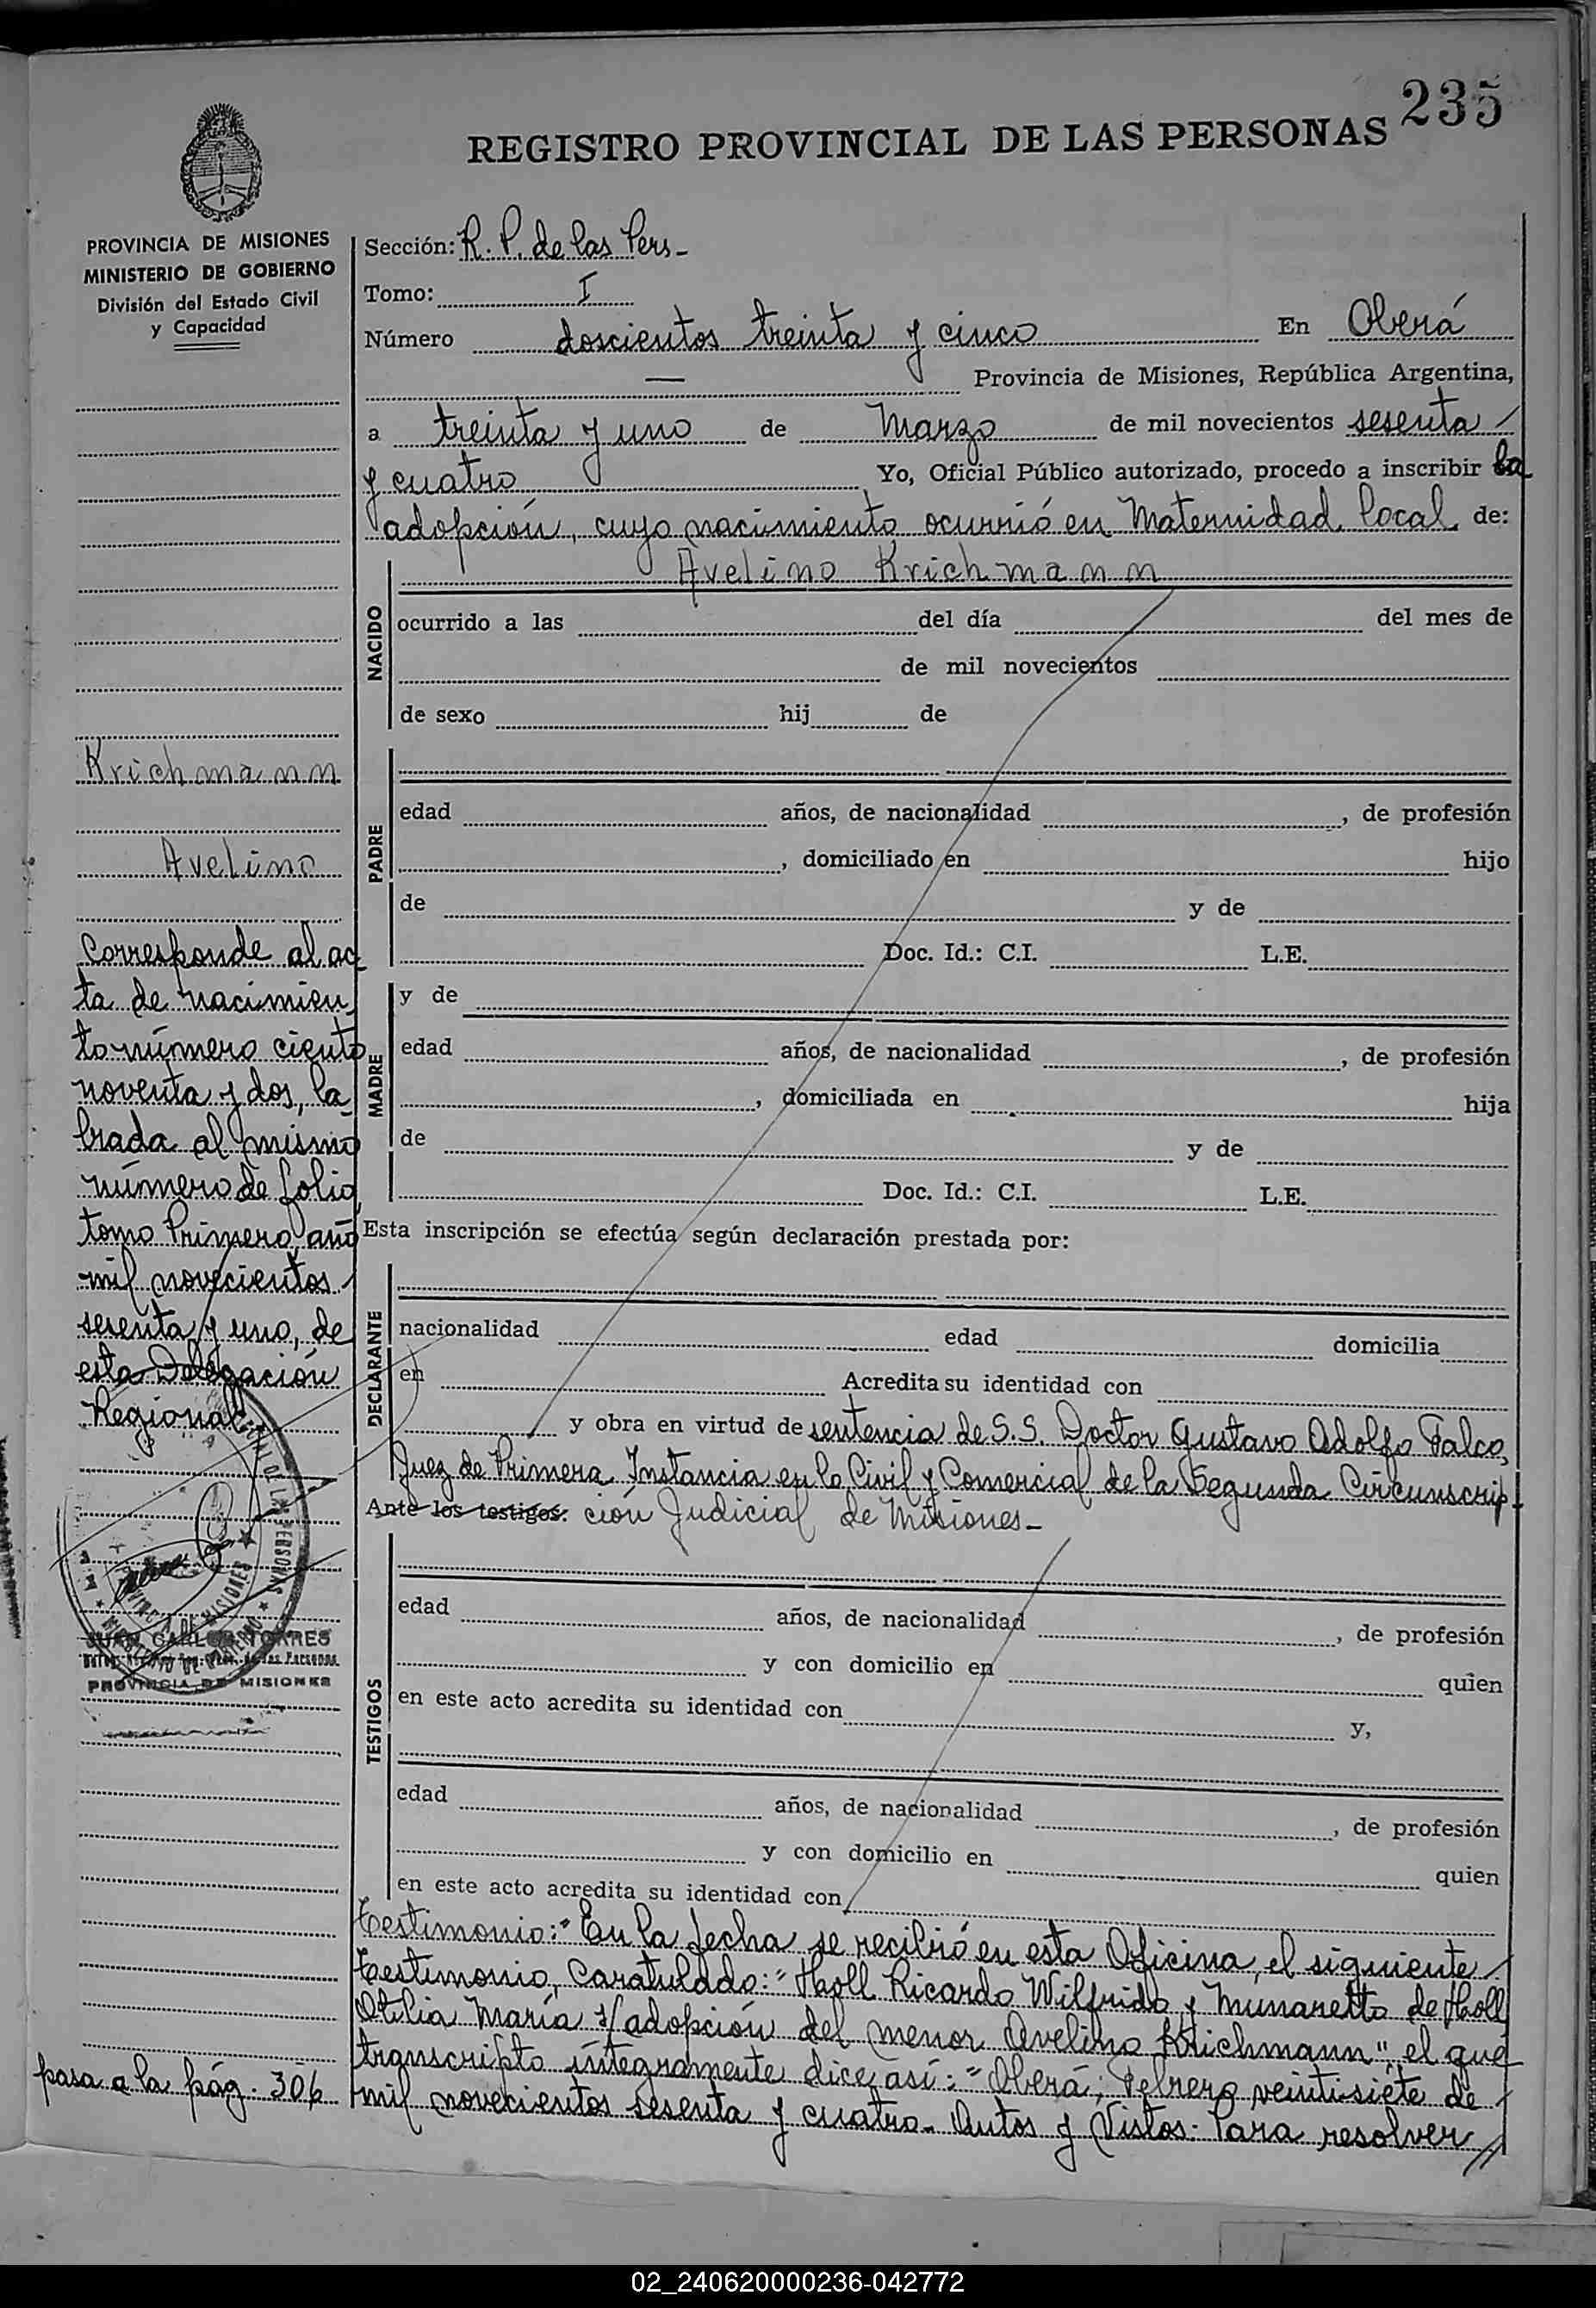 235
REGISTRO PROVINCIAL DE LAS PERSONAS
PROVINCIA DE MISIONES
MINISTERIO DE GOBIERNO
División del Estado Civil
y Capacidad
Sección: R. P. de las Pers.
Tomo: I
Número doscientos treinta y cinco En Oberá
— Provincia de Misiones, República Argentina,
a treinta y uno de Marzo de mil novecientos sesenta
y cuatro Yo, Oficial Público autorizado, procedo a inscribir la
adopción, cuyo nacimiento ocurrió en Maternidad local de:
NACIDO
Avelino Krichmann
ocurrido a las del día del mes de
de mil novecientos
de sexo hij de
PADRE
edad años, de nacionalidad , de profesión
, domiciliado en hijo
de y de
Doc. Id.: C.I. L.E.
MADRE
y de
edad años, de nacionalidad , de profesión
, domiciliada en hija
de y de
Doc. Id.: C.I. L.E.
Esta inscripción se efectúa según declaración prestada por:
DECLARANTE
nacionalidad edad domicilia
en Acredita su identidad con
y obra en virtud de sentencia de S.S. Doctor Gustavo Adolfo Falco,
Juez de Primera Instancia en lo Civil y Comercial de la Segunda Circunscrip-
Ante los testigos: ción Judicial de Misiones-
TESTIGOS
edad años, de nacionalidad , de profesión
y con domicilio en quien
en este acto acredita su identidad con y,
edad años, de nacionalidad , de profesión
y con domicilio en quien
en este acto acredita su identidad con
testimonio: "En la fecha se recibió en esta Oficina, el siguiente
testimonio, Caratulado: "Holl Ricardo Wilfrido y Munaretto de Holl
Otilia María s/adopción del menor Avelino Krichmann", el que
transcripto íntegramente dice así: "Oberá, Febrero veintisiete de
mil novecientos sesenta y cuatro. Autos y Vistos: Para resolver //
Krichmann
Avelino
Corresponde al ac
ta de nacimien
to número ciento
noventa y dos, la
brada al mismo
número de folio
tomo Primero, año
mil novecientos
sesenta y uno, de
esta Delegación
Regional
JUAN CARLOS TORRES
PROVINCIA DE MISIONES
pasa a la pág. 306
02_240620000236-042772